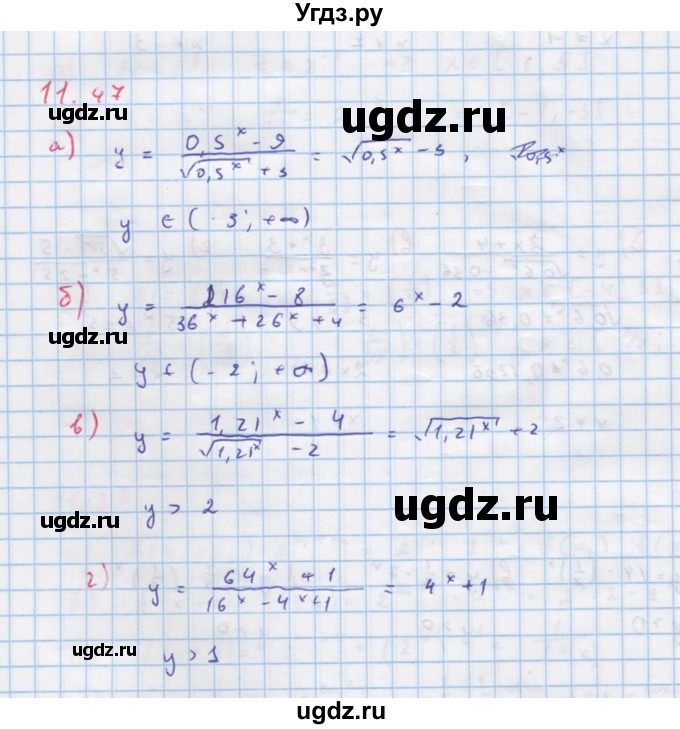 Угдз.ру
11.47
ugdz.ru
ugdz.ru
а) y = (0,5^x - 9)/(√(0,5^x) + 3) = √(0,5^x) - 3,
ugdz.ru
y ∈ (-3; +∞)
б) y = (216^x - 8)/(36^x + 26^x + 4) = 6^x - 2
ugdz.ru
y ∈ (-2; +∞)
в) y = (1,21^x - 4)/(√(1,21^x) - 2) = √(1,21^x) + 2
ugdz.ru
y > 2
ugdz.ru
г) y = (64^x + 1)/(16^x - 4^x + 1) = 4^x + 1
ugdz.ru
y > 1
ugdz.ru
ugdz.ru